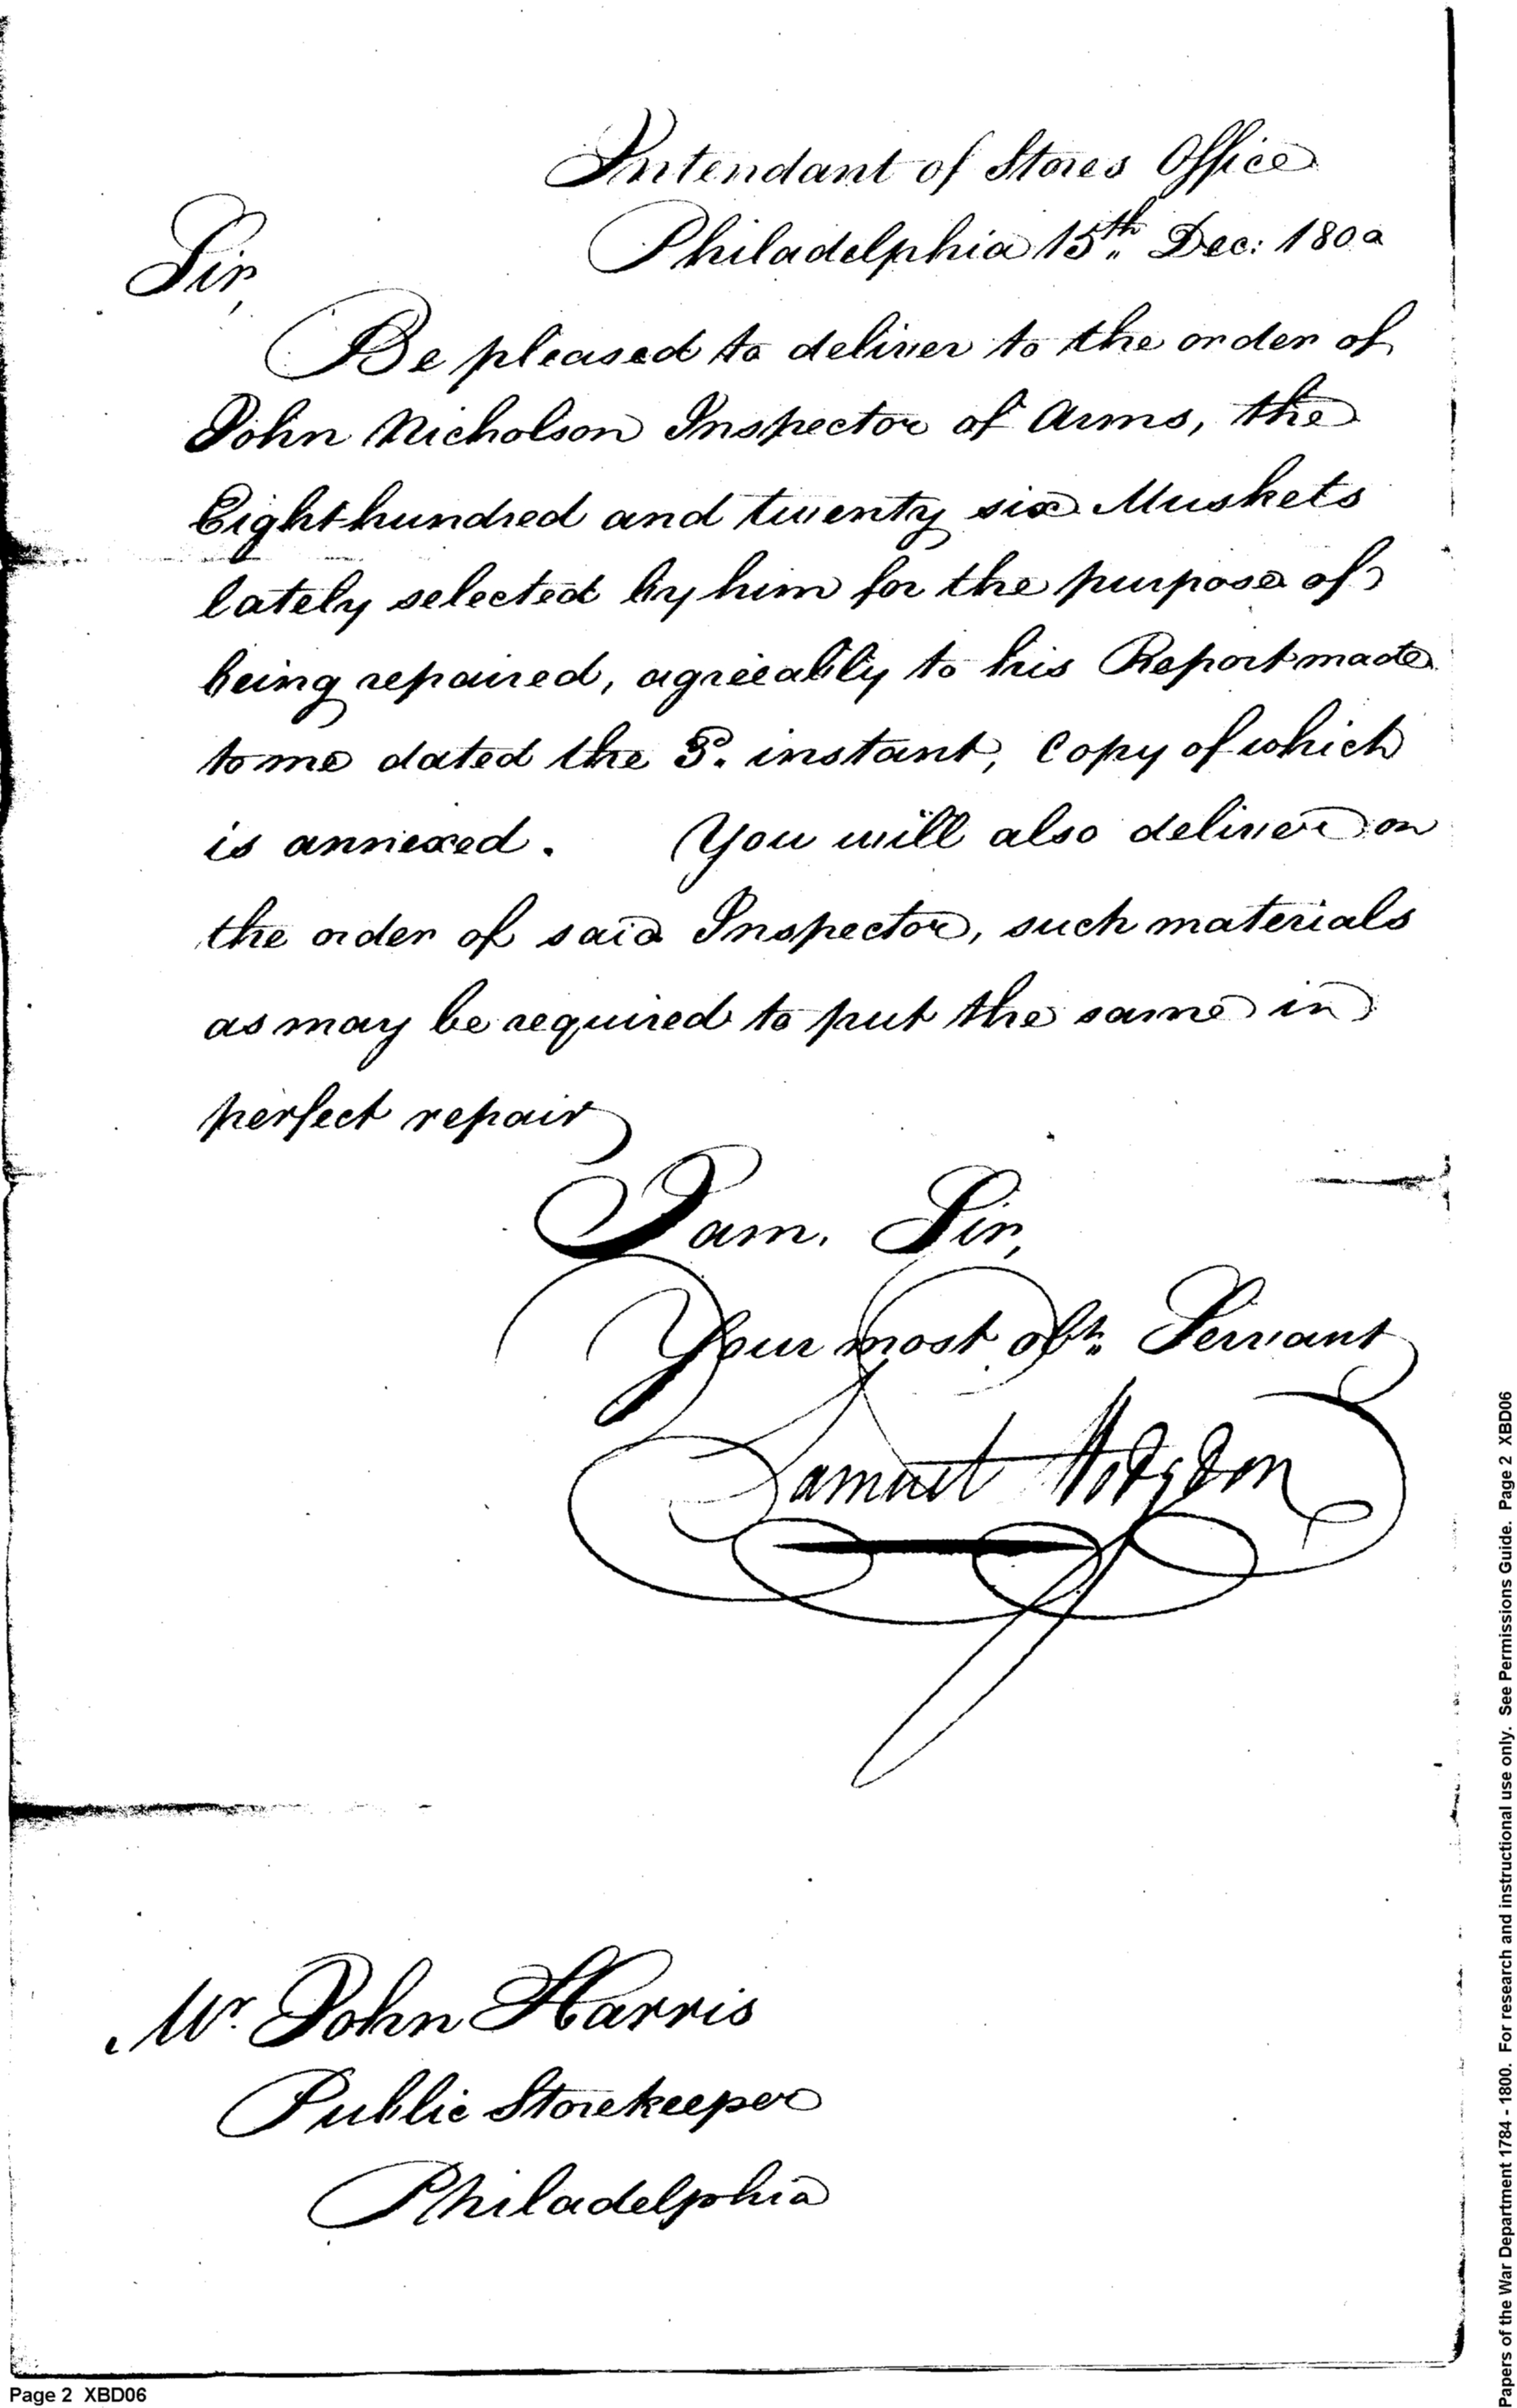 Intendant of Stores Office
Philadelphia 15th Dec: 1800
Sir,
Be pleased to deliver to the order of
John Nicholson Inspector of Arms, the
Eight hundred and twenty six Muskets
lately selected by him for the purpose of
being repaired, agreeably to his Report made
to me dated the instant, Copy of which
is annexed. You will also deliver on
the order of said Inspector, such materials
as may be required to put the same in
perfect repair
I am, Sir,
Your most obt. Servant
Samuel Hodgdon
Mr. John Harris
Public Storekeeper
Philadelphia
Page 2 XBD06
Papers of the War Department 1784 - 1800. For research and instructional use only. See Permissions Guide. Page 2 XBD06